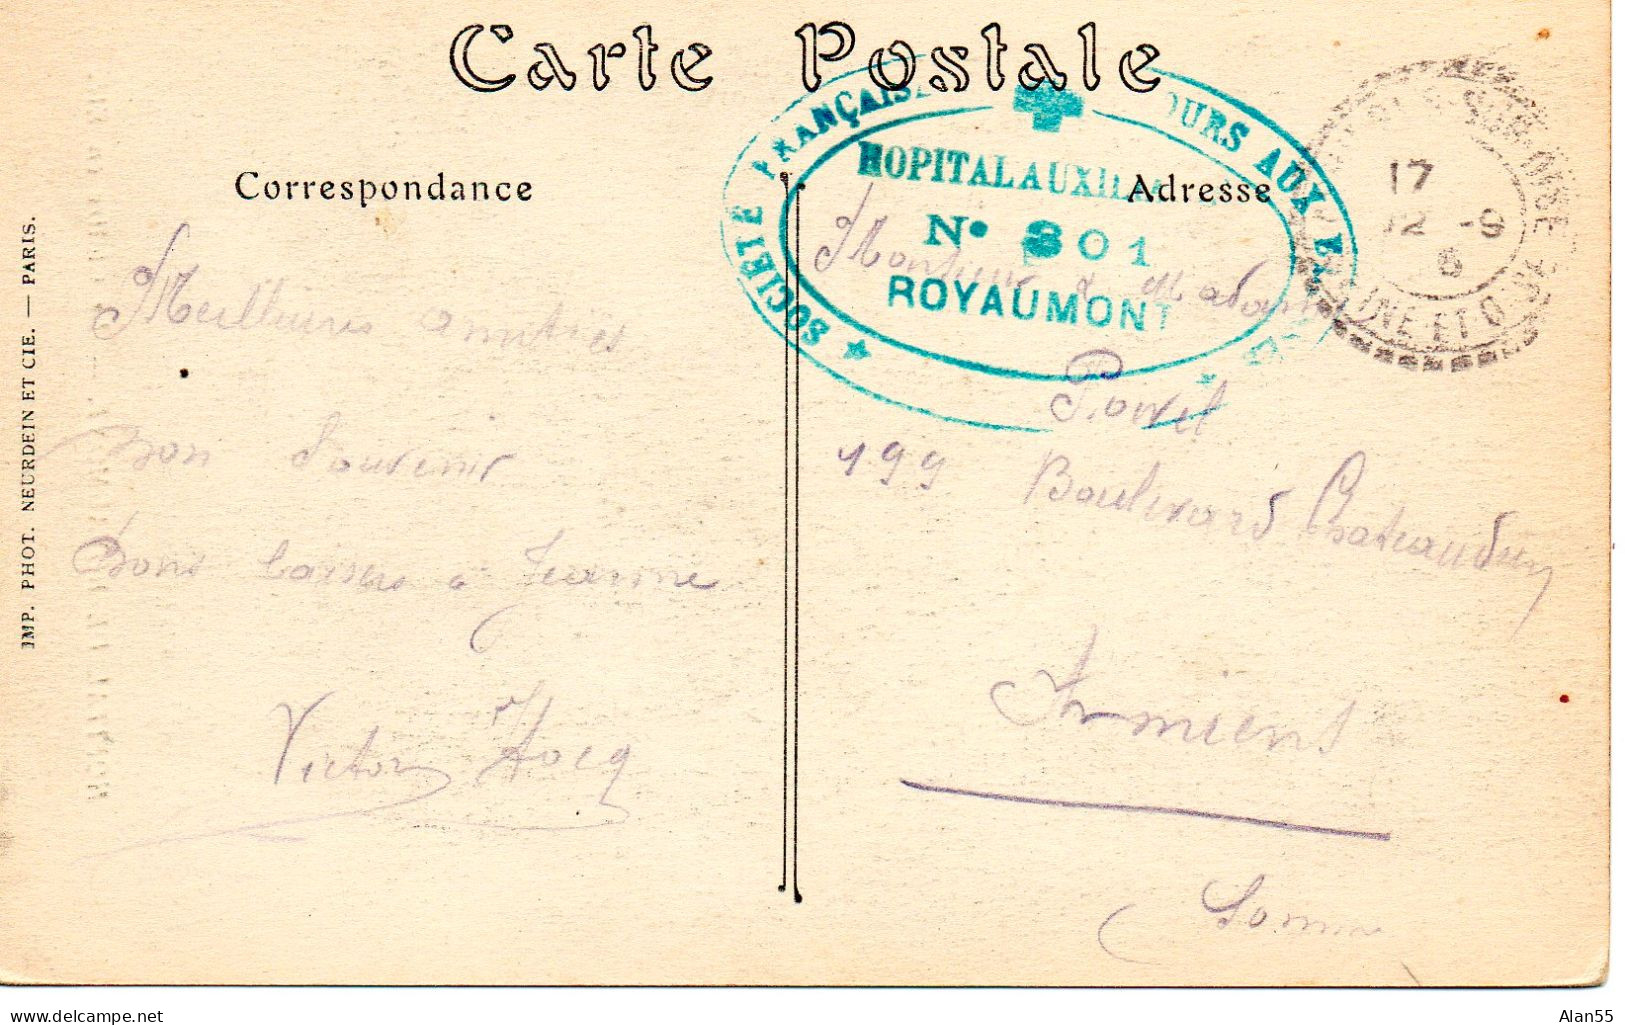 Carte Postale
SOCIÉTÉ FRANÇAISE OURS AUX
HOPITAL AUXILIA
N° 301
ROYAUMONT
17
12 -9
SUR-OISE
SEINE-ET-O
Correspondance
Adresse
Meilleures amitiés
Bon Souvenir
Bons baisers à Jeanne
Victor Hocq
Monsieur & Madame
199 Boulevard Chateaudun
Amiens
Somme
IMP. PHOT. NEURDEIN ET CIE. — PARIS.
www.delcampe.net
Alan55